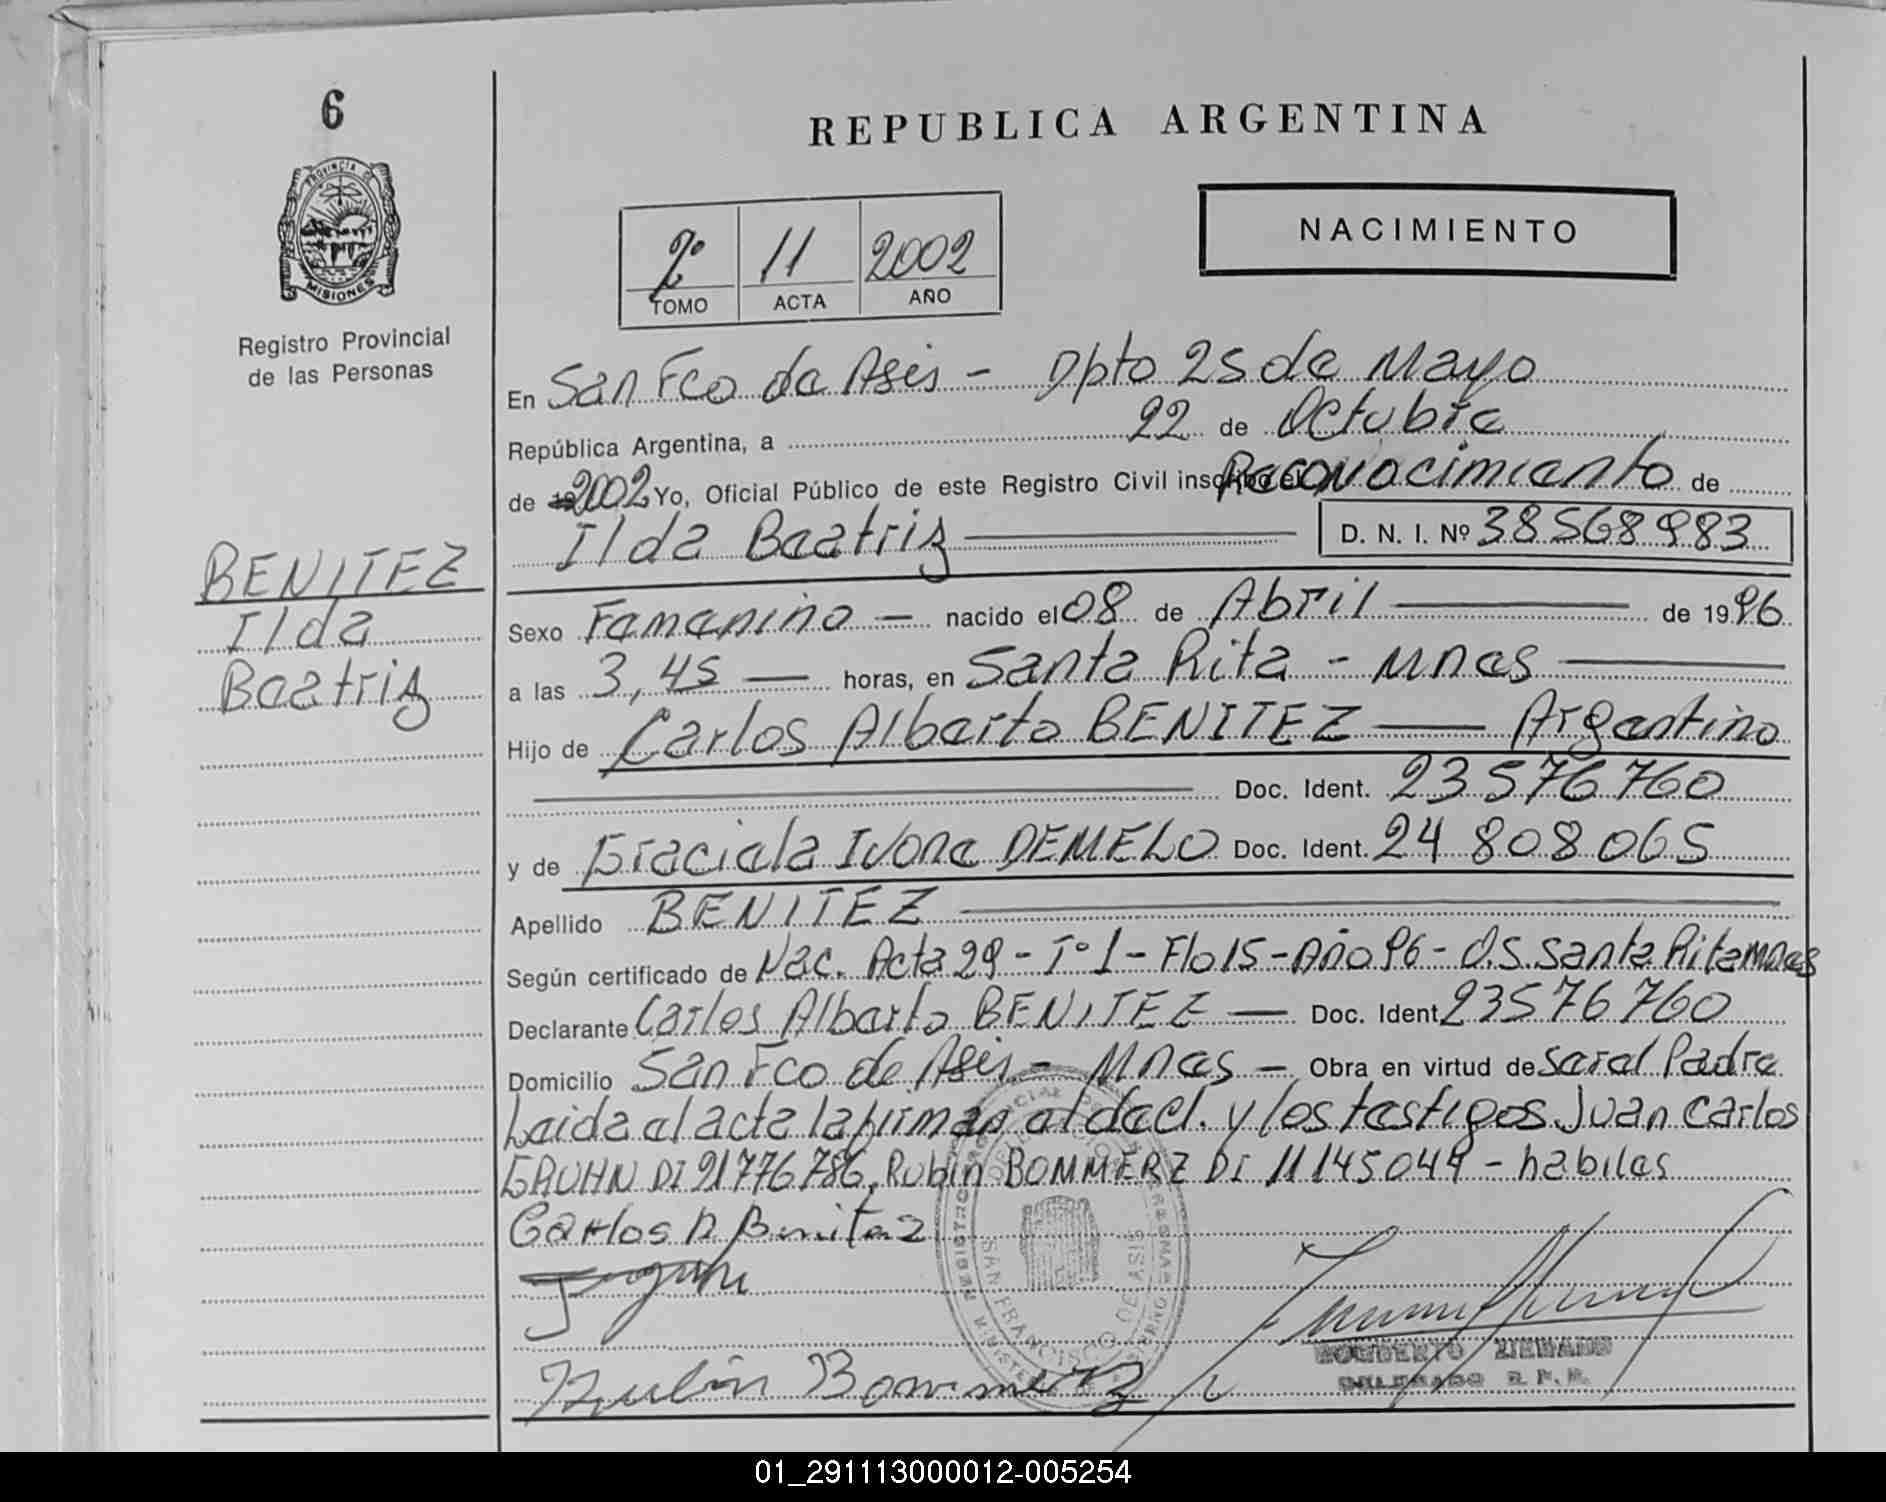 6
PROVINCIA DE
MISIONES
Registro Provincial
de las Personas
BENITEZ
Ilda
Beatriz
REPUBLICA ARGENTINA
2º 11 2002
TOMO ACTA AÑO
NACIMIENTO
En San Fco de Asis - Dpto 25 de Mayo
República Argentina, a 22 de Octubre
de 2002 Yo, Oficial Público de este Registro Civil inscribo el Reconocimiento de
Ilda Beatriz D. N. I. Nº 38568983
Sexo Femenino - nacido el 08 de Abril de 1996
a las 3,45 horas, en Santa Rita - Mnes
Hijo de Carlos Alberto BENITEZ Argentino
Doc. Ident. 23576760
y de Graciela Ivone DEMELO Doc. Ident. 24 808 065
Apellido BENITEZ
Según certificado de Nac. Acta 29 - Tº 1 - Flo 15 - Año 96 - D.S. Santa Rita Mnes
Declarante Carlos Alberto BENITEZ Doc. Ident 23576760
Domicilio San Fco de Asis - Mnes - Obra en virtud de ser el Padre
Leida el acta la firman el decl. y los testigos Juan Carlos
GRUHN DI 91776786, Rubin BOMMERZ DI 11145049 - habiles
Carlos A Benitez
Rubin Bommerz
SAN FRANCISCO DE ASIS
01_291113000012-005254